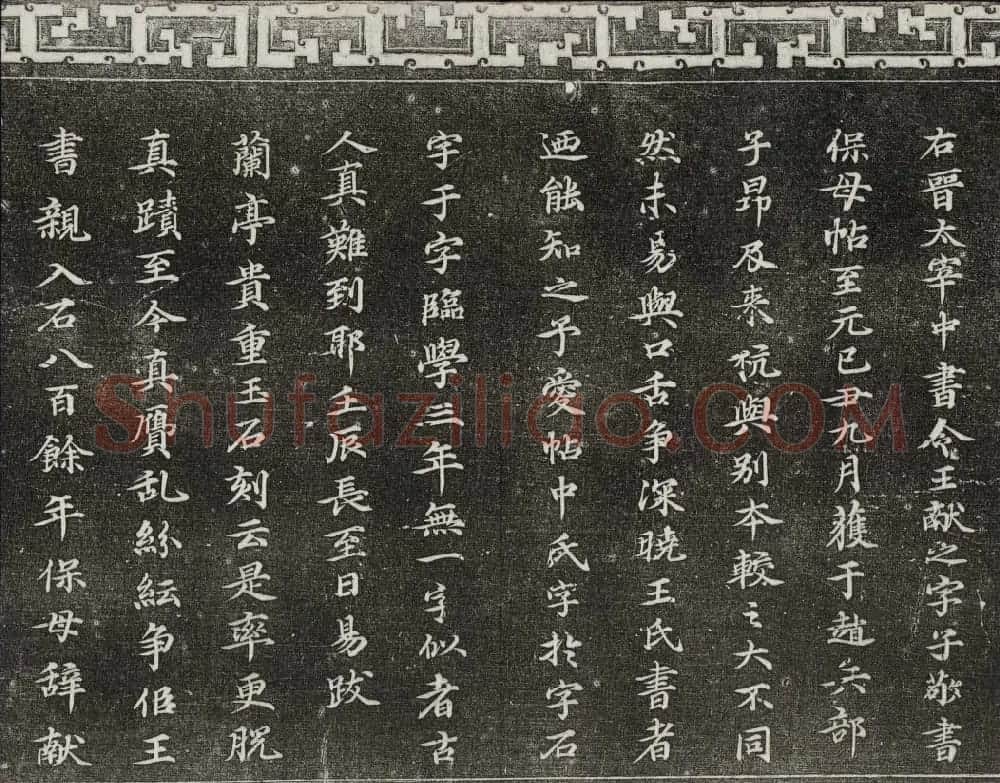 右晉太宰中書令王献之字子敬書
保母帖至元己丑九月獲于趙兵部
子昂及来杭與别本較之大不同
然未易與口舌争深曉王氏書者
迺能知之予愛帖中氏字於字石
字于字臨學三年無一字似者古
人真難到耶壬辰長至日易跋
蘭亭貴重玉石刻云是率更脱
真蹟至今真贋乱絲紜争佀王
書親入石八百餘年保母辞献
Shufaziliao.COM